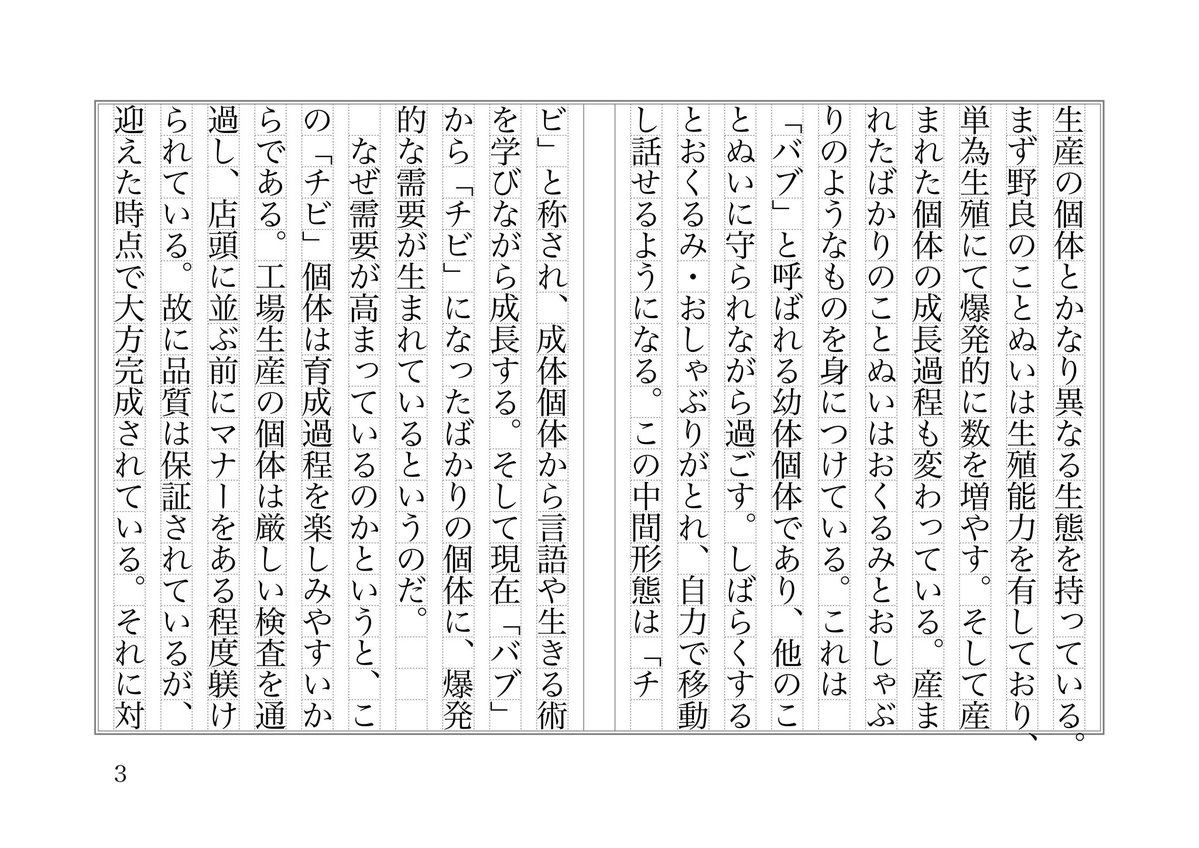 生産の個体とかなり異なる生態を持っている。
まず野良のことぬいは生殖能力を有しており、
単為生殖にて爆発的に数を増やす。そして産
まれた個体の成長過程も変わっている。産ま
れたばかりのことぬいはおくるみとおしゃぶ
りのようなものを身につけている。これは
「バブ」と呼ばれる幼体個体であり、他のこ
とぬいに守られながら過ごす。しばらくする
とおくるみ・おしゃぶりがとれ、自力で移動
し話せるようになる。この中間形態は「チ
ビ」と称され、成体個体から言語や生きる術
を学びながら成長する。そして現在「バブ」
から「チビ」になったばかりの個体に、爆発
的な需要が生まれているというのだ。
なぜ需要が高まっているのかというと、こ
の「チビ」個体は育成過程を楽しみやすいか
らである。工場生産の個体は厳しい検査を通
過し、店頭に並ぶ前にマナーをある程度躾け
られている。故に品質は保証されているが、
迎えた時点で大方完成されている。それに対
3